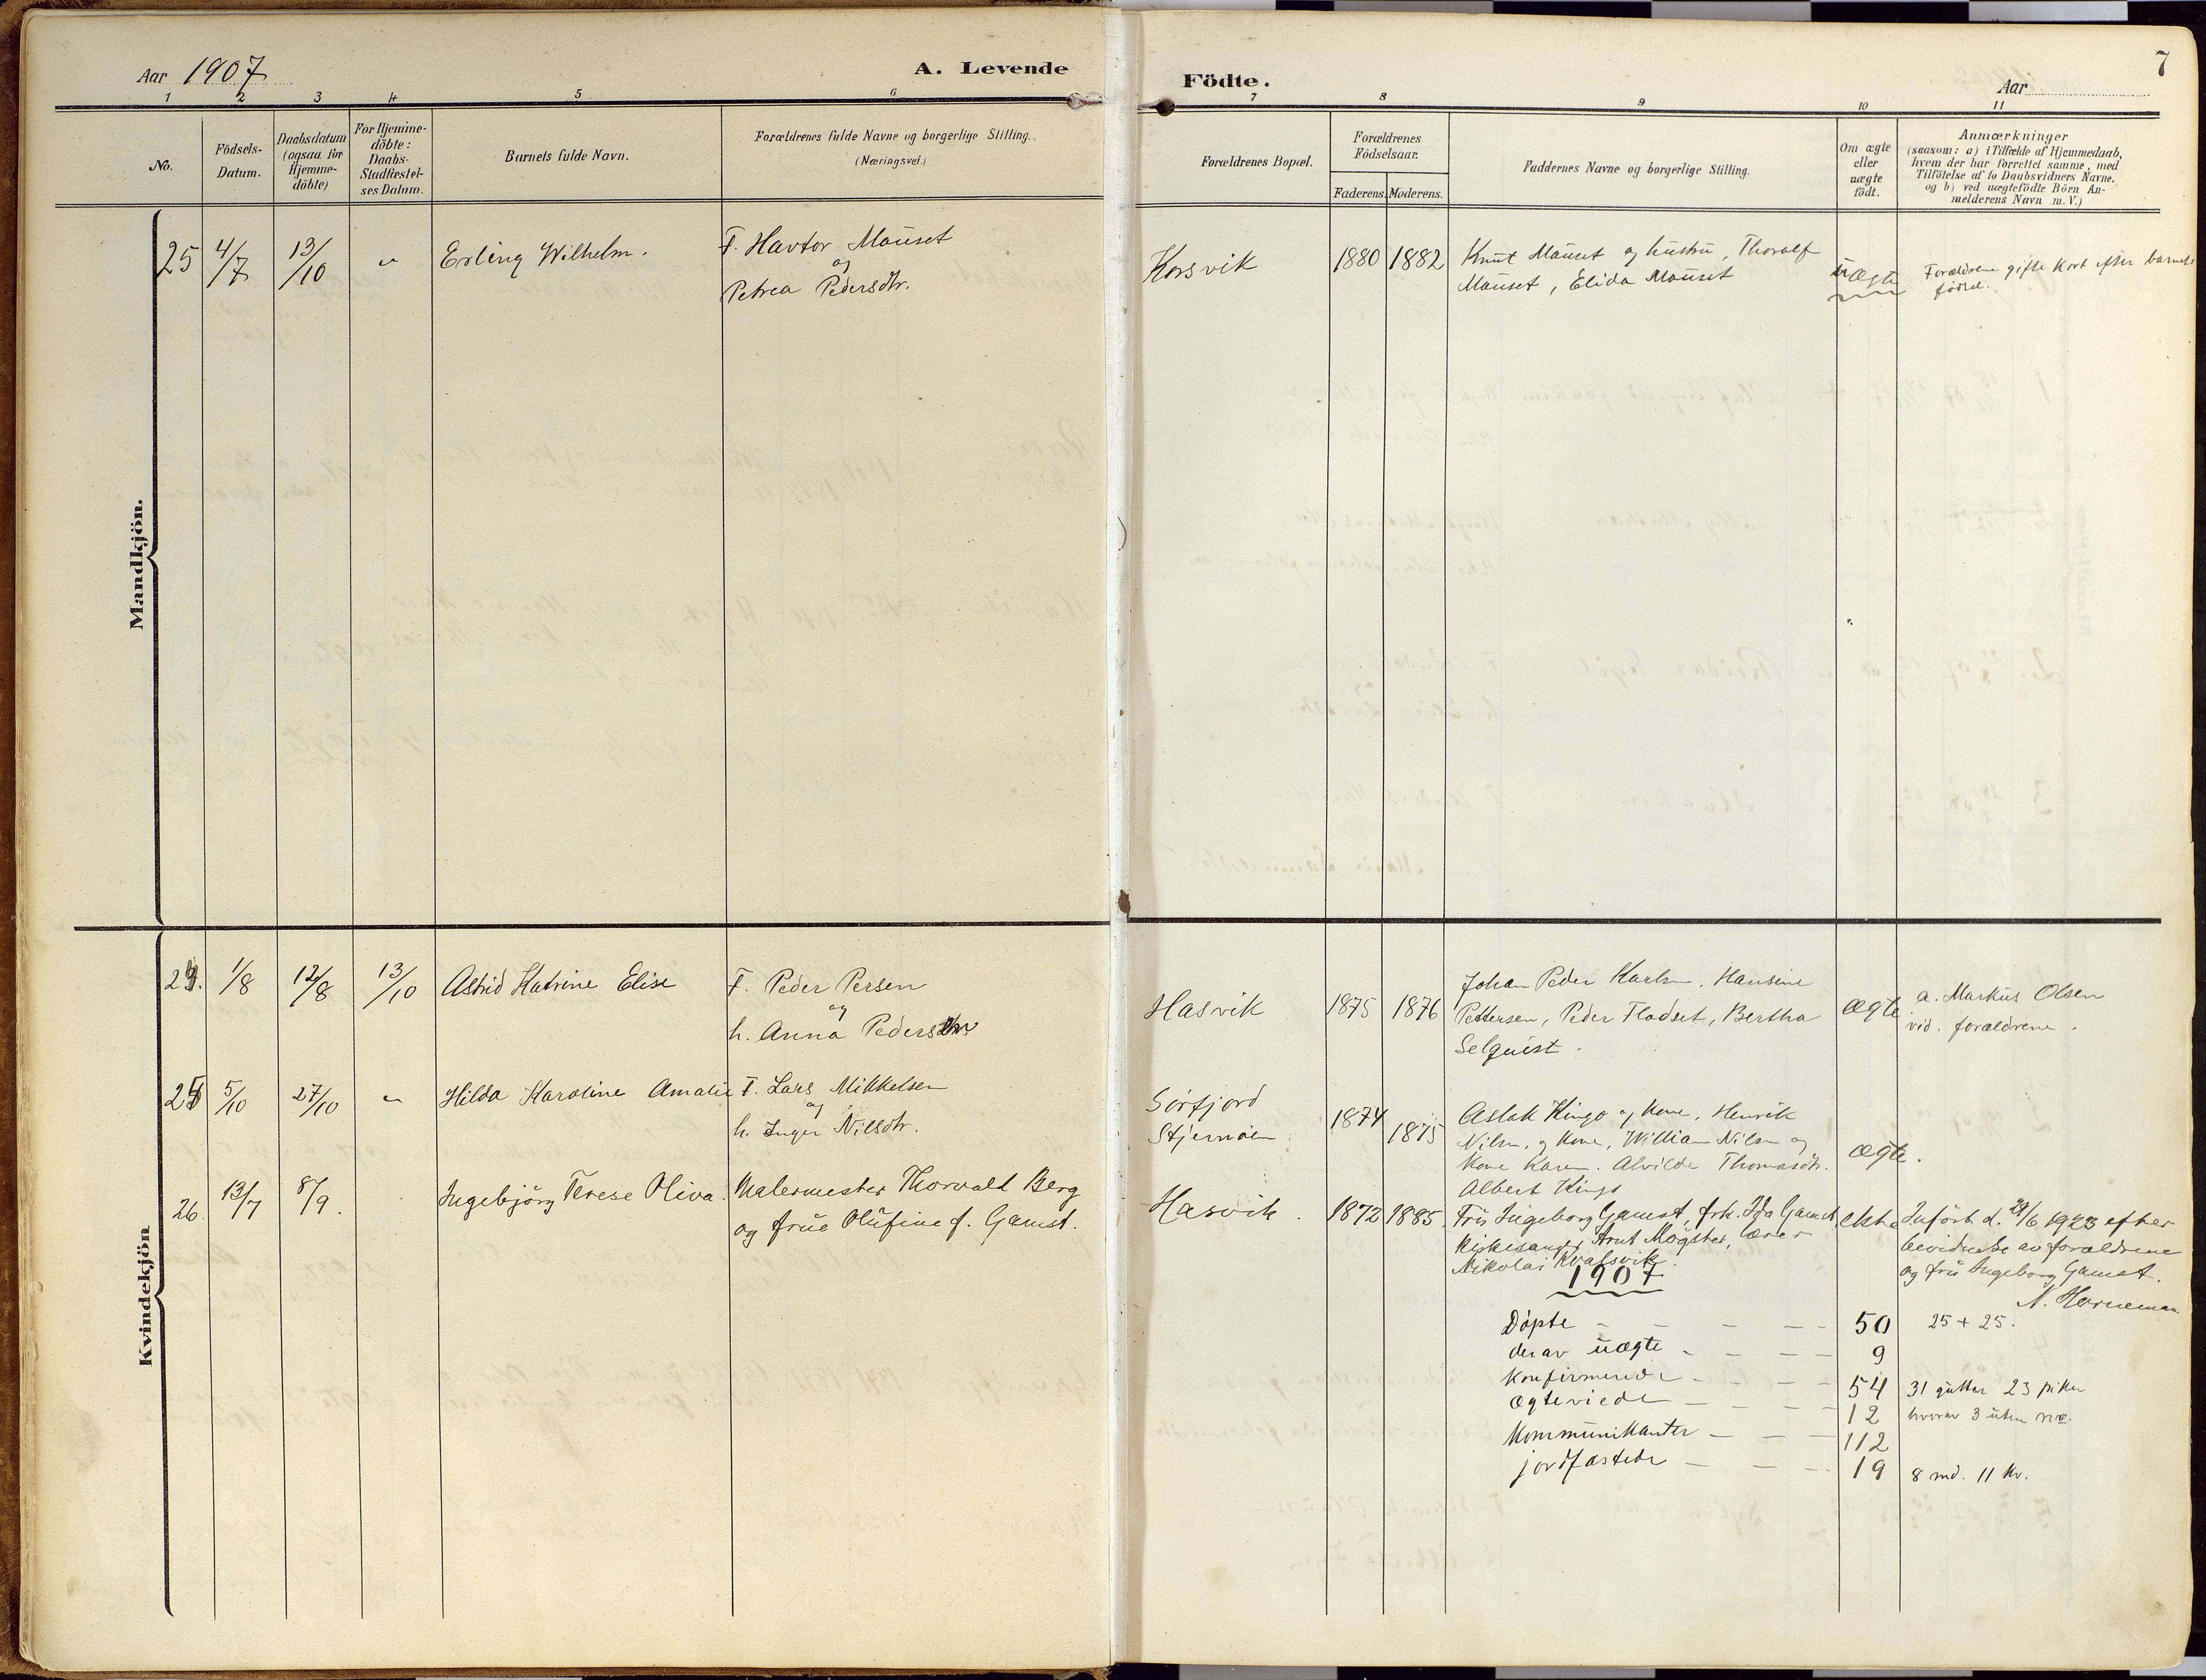 Aar 1907
A. Levende
Födte.
Aar
7
1 2 3 4 5 6 7 8 9 10 11
No.
Födsels-
Datum.
Daabsdatum
(ogsaa for
Hjemme-
döbte)
For Hjemme-
döbte:
Daabs-
Stadfæstel-
ses Datum.
Barnets fulde Navn.
Forældrenes fulde Navne og borgerlige Stilling.
(Næringsvei.)
Forældrenes Bopæl.
Forældrenes
Födselsaar.
Faderens. Moderens.
Faddernes Navne og borgerlige Stilling.
Om ægte
eller
uægte
födt.
Anmærkninger
(saasom: a) i Tilfælde af Hjemmedaab,
hvem der har forrettet samme, med
Tilföielse af to Daabsvidners Navne.
og b) ved uægtefödte Börn An-
melderens Navn m. V.)
Mandkjön.
25 4/7 13/10 " Erling Wilhelm.
F. Havtor Mauset
og
Petrea Pedersdtr.
Korsvik 1880 1882
Knut Mauset og hustru, Thoralf
Mauset, Elida Mauset
uægte
Forældrene gifte kort efter barnets
födsel.
Kvindekjön
24. 1/8 12/8 13/10 Astrid Katrine Elise
F. Peder Persen
og
h. Anna Pedersdtr
Hasvik 1875 1876
Johan Peder Karlsn, Hansine
Pettersen, Peder Fladset, Bertha
Selquist.
ægte
a. Markus Olsen
vid. forældrene.
25 5/10 27/10 " Hilda Karoline Amalie
F. Lars Mikkelsen
og
h. Inger Nilsdtr.
Sörfjord
Stjernöen
1874 1875
Aslak Kingo og kone, Henrik
Nilsn. og kone, William Nilsn og
kone Karen. Alvilde Thomasdtr.
Albert Kingo
ægte.
26. 13/7 8/9. Ingebjörg Terese Oliva.
Malermester Thorvald Berg
og frue Olufine f. Gamst.
Hasvik. 1872 1885.
Fru Ingeborg Gamst, frk. Ida Gamst,
Kirkesanger Arnt Mögster, lærer
Nikolai Kvalsvik.
ekte
Infört d. 21/6 1923 efter
bevidnelse av forældrene
og fru Ingeborg Gamst.
N. Horneman.
1907
Döpte - - - - - 50 25 + 25.
derav uægte - - - - 9
Konfirmerede - - - - 54 31 gutter 23 piker
Ægteviede - - - - 12 hvorav 3 uten
Kommunikanter - - - 112
jordfæstede - - - 19 8 md. 11 kv.